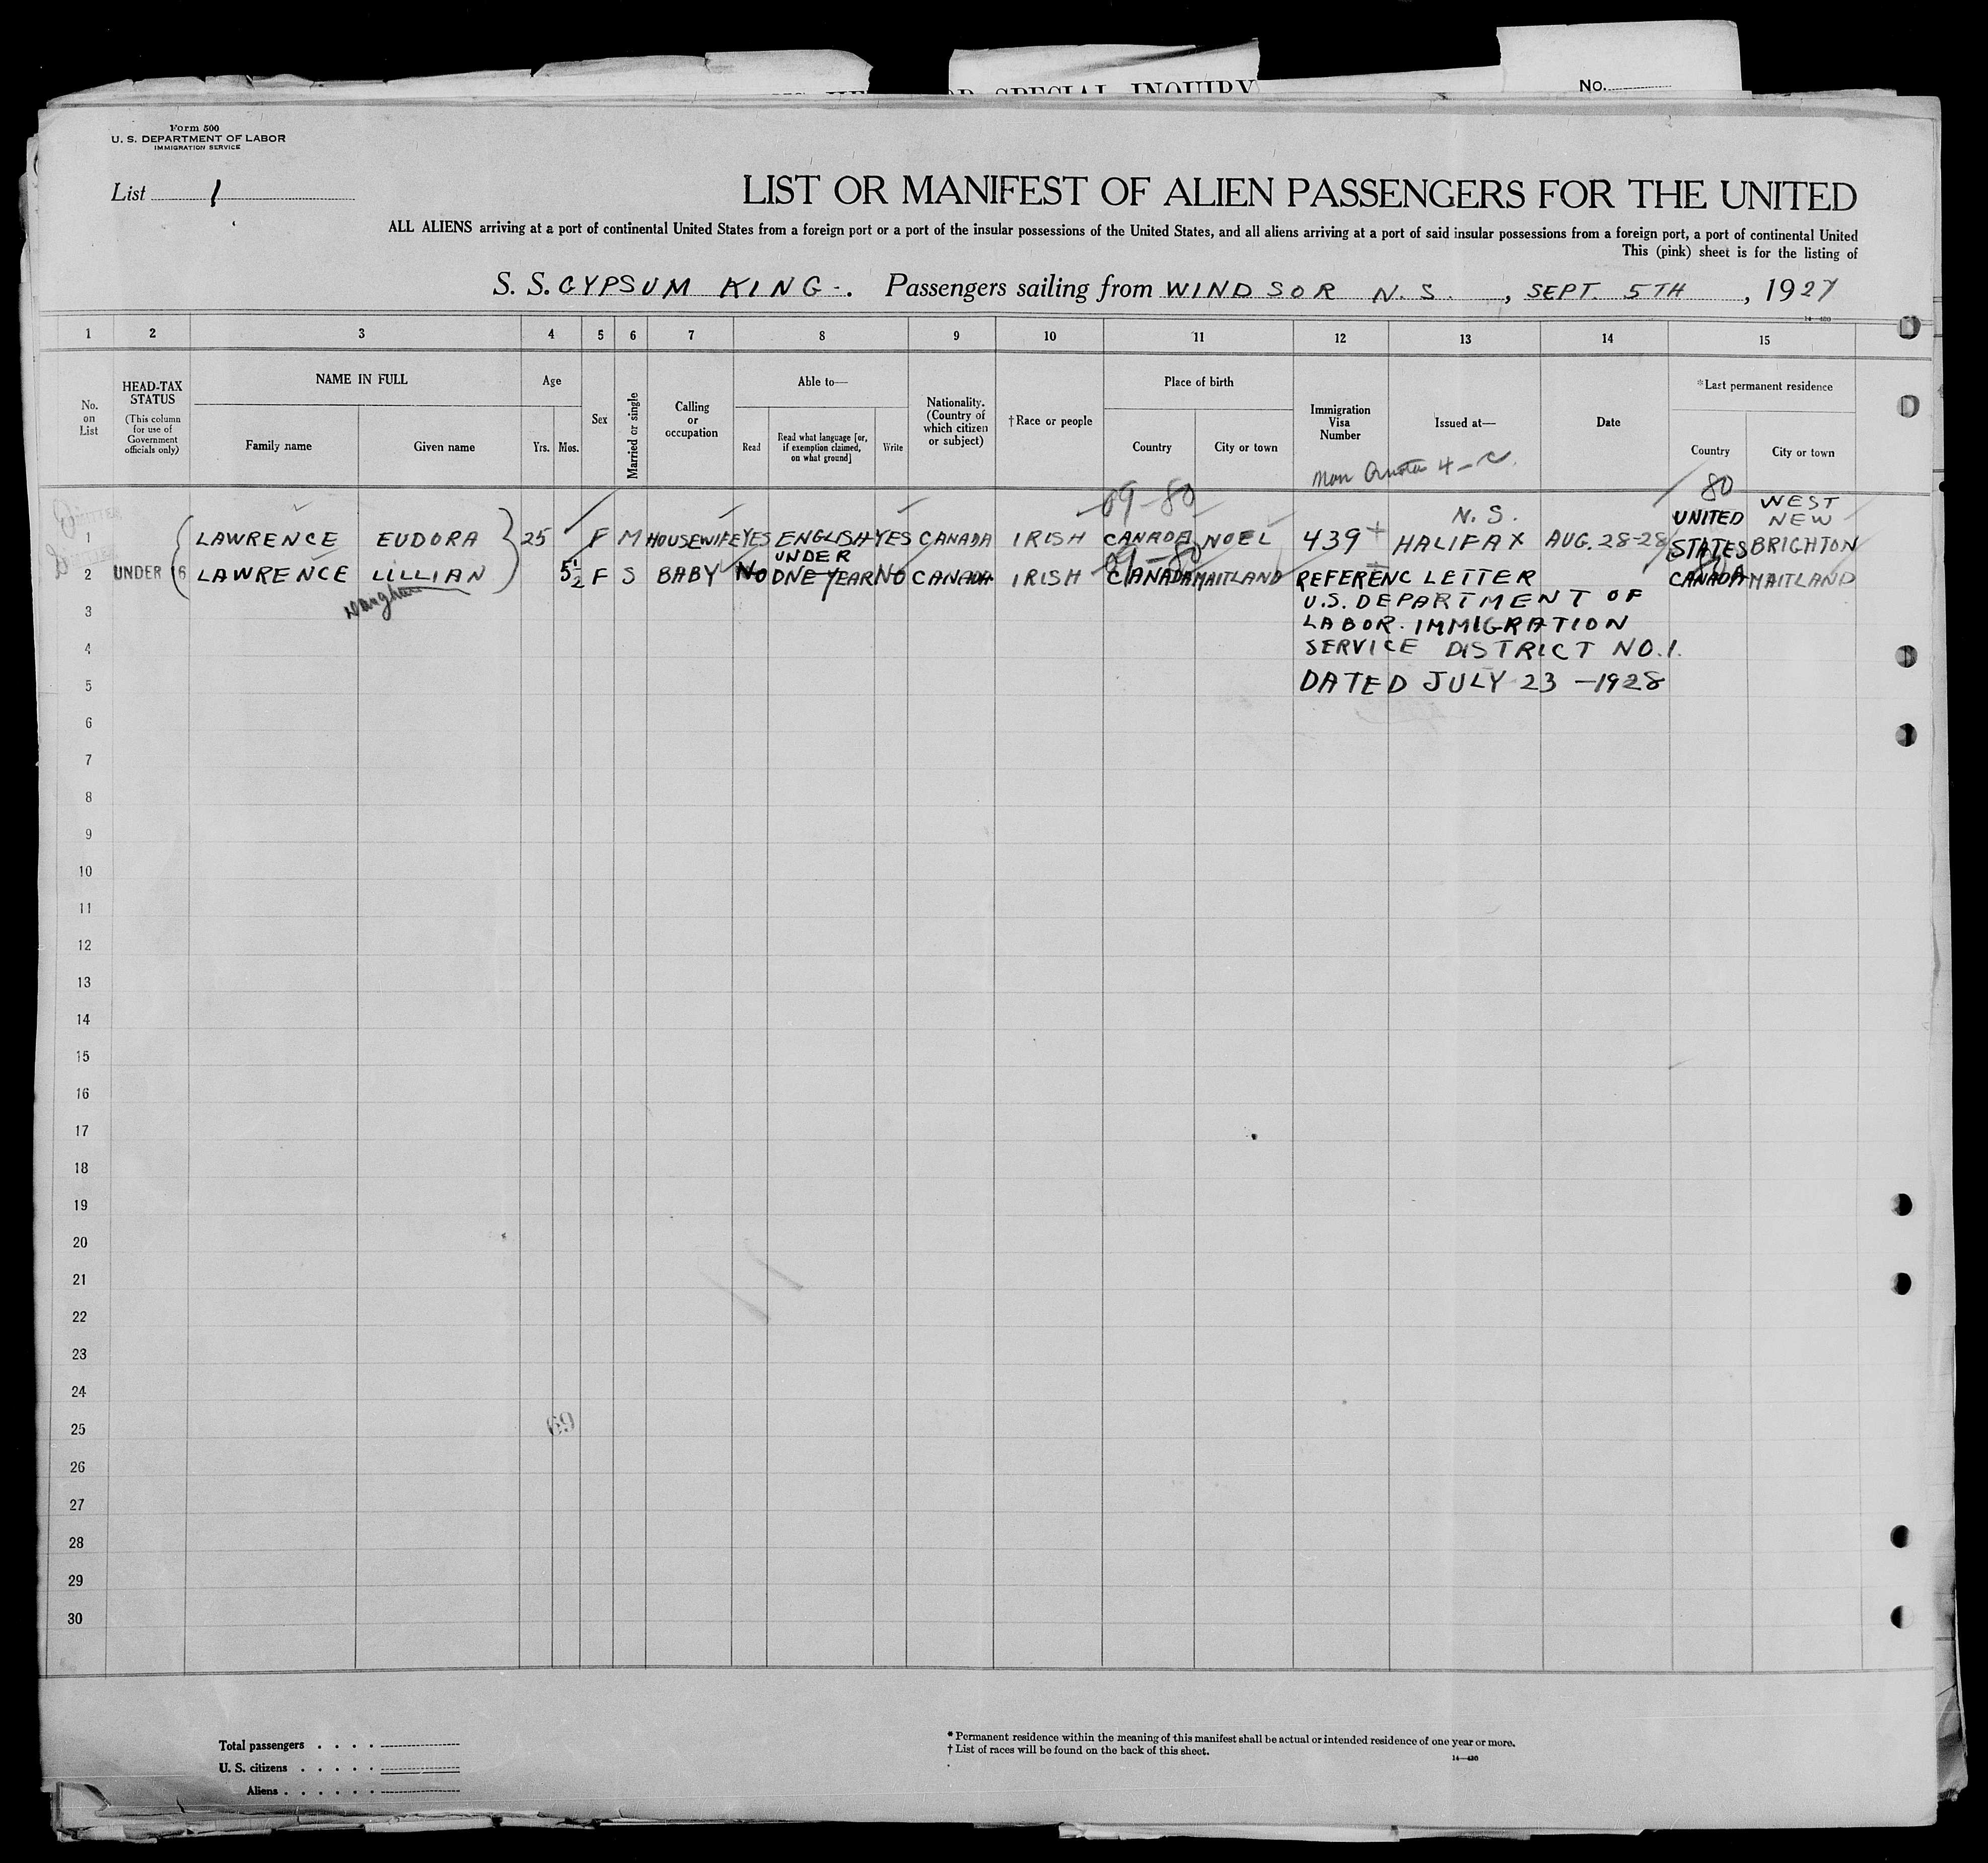 SPECIAL INQUIRY
No.
Form 500
U. S. DEPARTMENT OF LABOR
IMMIGRATION SERVICE
List 1
LIST OR MANIFEST OF ALIEN PASSENGERS FOR THE UNITED
ALL ALIENS arriving at a port of continental United States from a foreign port or a port of the insular possessions of the United States, and all aliens arriving at a port of said insular possessions from a foreign port, a port of continental United
This (pink) sheet is for the listing of
S. S. GYPSUM KING. Passengers sailing from WINDSOR N. S., SEPT. 5TH, 1927
14—430
1 2 3 4 5 6 7 8 9 10 11 12 13 14 15
No. on List
HEAD-TAX STATUS
(This column for use of Government officials only)
NAME IN FULL
Family name Given name
Age
Yrs. Mos.
Sex
Married or single
Calling or occupation
Able to—
Read
Read what language [or, if exemption claimed, on what ground]
Write
Nationality. (Country of which citizen or subject)
†Race or people
Place of birth
Country City or town
Immigration Visa Number
Issued at—
Date
*Last permanent residence
Country City or town
Non Quota 4-c
69-80
80
1 LAWRENCE EUDORA 25 F M HOUSEWIFE YES ENGLISH YES CANADA IRISH CANADA NOEL 439 N. S. HALIFAX AUG. 28-28 UNITED STATES WEST NEW BRIGHTON
69-80
2 UNDER 16 LAWRENCE LILLIAN 5½ F S BABY NO UNDER ONE YEAR NO CANADA IRISH CANADA MAITLAND REFERENC LETTER CANADA MAITLAND
daughter
U.S. DEPARTMENT OF
LABOR. IMMIGRATION
SERVICE DISTRICT NO. 1.
DATED JULY 23 -1928
3
4
5
6
7
8
9
10
11
12
13
14
15
16
17
18
19
20
21
22
23
24
25
26
27
28
29
30
Total passengers
U. S. citizens
Aliens
* Permanent residence within the meaning of this manifest shall be actual or intended residence of one year or more.
† List of races will be found on the back of this sheet.
14—430